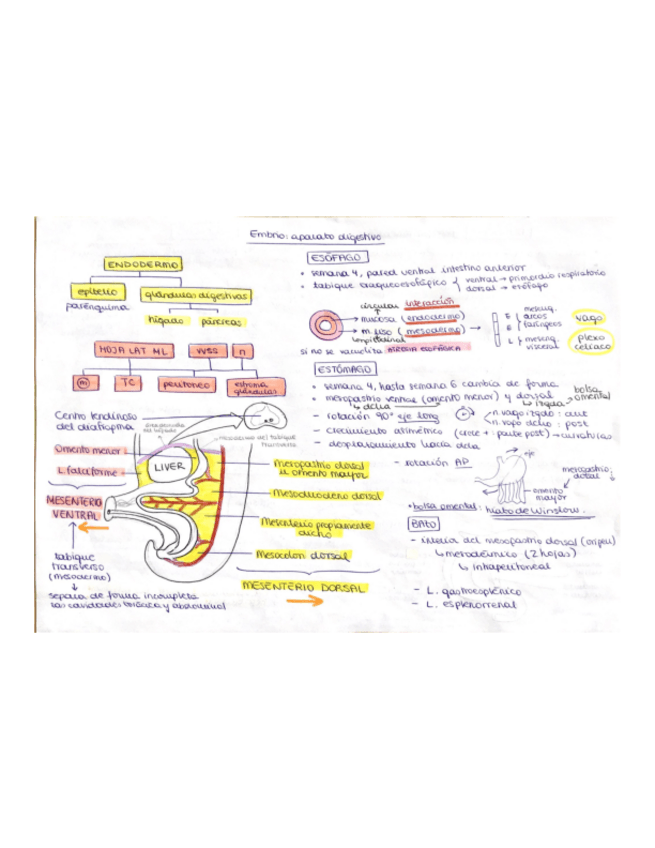 Embrio: aparato digestivo
ENDODERMO
epitelio
glándulas digestivas
parénquima
hígado
páncreas
HOJA LAT ML
VVSS
n
m
TC
peritoneo
estroma glándulas
Centro tendinoso
del diafragma
Omento menor
L. falciforme
MESENTERIO
VENTRAL
tabique
transverso
(mesodermo)
separa de forma incompleta
las cavidades torácica y abdominal
LIVER
mesodermo del tabique
transverso
Mesogastrio dorsal
u omento mayor
Mesoduodeno dorsal
Mesenterio propiamente
dicho
Mesocolon dorsal
MESENTERIO DORSAL
ESÓFAGO
• semana 4, pared ventral intestino anterior
• tabique traqueoesofágico
ventral → primordio respiratorio
dorsal → esófago
circular
interacción
mucosa (endodermo)
m. liso (mesodermo) →
longitudinal
si no se vacuoliza ATRESIA ESOFÁGICA
mesenq.
arcos
faríngeos
mesenq.
visceral
vago
plexo
celíaco
ESTÓMAGO
• semana 4, hasta semana 6 cambia de forma
• mesogastrio ventral (omento menor) y dorsal
↳ dcha
↳ izqda
bolsa
omental
- rotación 90° eje long
n. vago izqdo: ant
n. vago dcho: post
- crecimiento asimétrico (crece + parte post) → curvaturas
- desplazamiento hacia dcha
- rotación AP
eje
mesogastrio
dorsal
omento
mayor
• bolsa omental: hiato de Winslow.
BAZO
- interior del mesogastrio dorsal (origen)
↳ mesodérmico (2 hojas)
↳ intraperitoneal
- L. gastroesplénico
- L. esplenorrenal